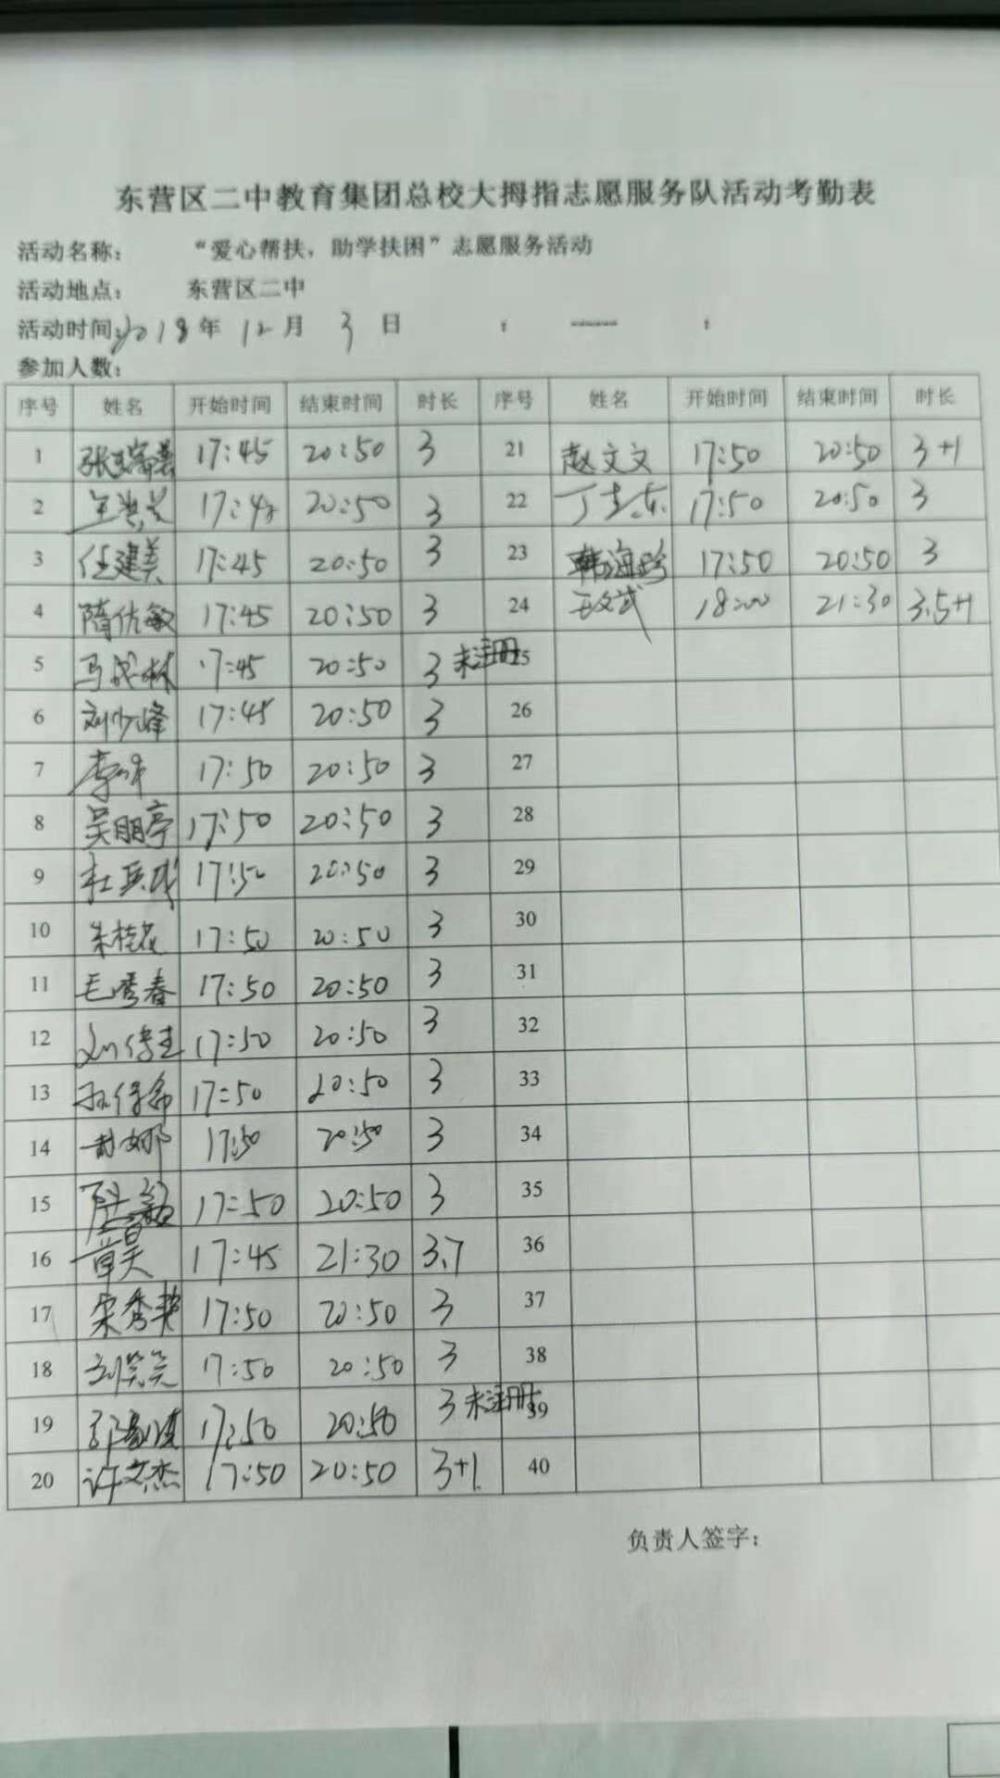 东营区二中教育集团总校大拇指志愿服务队活动考勤表
活动名称： “爱心帮扶，助学扶困”志愿服务活动
活动地点： 东营区二中
活动时间：2018年 12月 3日 ： —— ：
参加人数：
序号 姓名 开始时间 结束时间 时长 序号 姓名 开始时间 结束时间 时长
1 17:45 20:50 3 21 赵文文 17:50 20:50 3+1
2 20:50 3 22 17:50 20:50 3
3 任建美 17:45 20:50 3 23 17:50 20:50 3
4 隋佐敏 17:45 20:50 3 24 18:00 21:30 3.5+1
5 17:45 20:50 3 未注册 25
6 刘少峰 17:45 20:50 3 26
7 17:50 20:50 3 27
8 吴丽亭 17:50 20:50 3 28
9 17:50 20:50 3 29
10 朱桂花 17:50 20:50 3 30
11 毛秀春 17:50 20:50 3 31
12 17:50 20:50 3 32
13 17:50 20:50 3 33
14 17:50 20:50 3 34
15 17:50 20:50 3 35
16 17:45 21:30 3.7 36
17 宋秀艳 17:50 20:50 3 37
18 刘笑笑 17:50 20:50 3 38
19 17:50 20:50 3 未注册 39
20 许文杰 17:50 20:50 3+1 40
负责人签字：